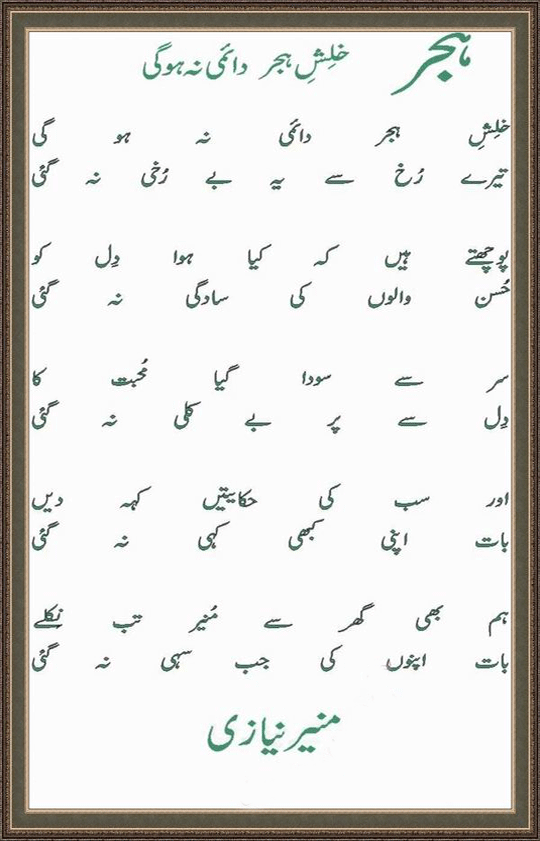 ہجر
خلِشِ ہجر دائمی نہ ہو گی
خلِشِ ہجر دائمی نہ ہو گی
تیرے رُخ سے یہ بے رُخی نہ گئی
پوچھتے ہیں کہ کیا ہوا دِل کو
حُسن والوں کی سادگی نہ گئی
سر سے سودا گیا مُحبت کا
دِل سے پر بے کلی نہ گئی
اور سب کی حکایتیں کہہ دیں
بات اپنی کبھی کہی نہ گئی
ہم بھی گھر سے مُنیر تب نکلے
بات اپنوں کی جب سہی نہ گئی
منیر نیازی